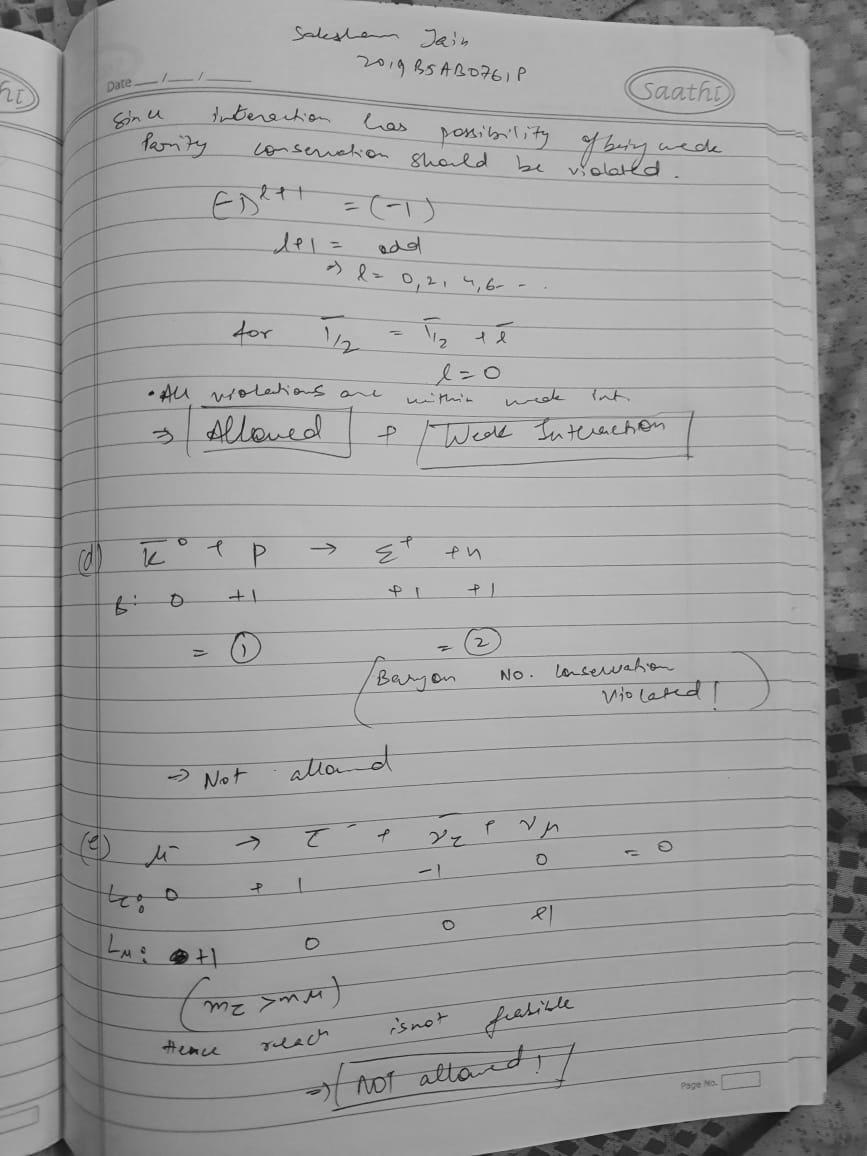 Saksham Jain
2019B5AB0761P
Date __/__/____
Saathi
Since interaction has possibility of being weak
Parity conservation should be violated.
(-1)^{l+1} = (-1)
l+1 = odd
⇒ l = 0, 2, 4, 6- - .
for 1̅/2 = 1̅/2 + l̅
l = 0
• All violations are within weak int.
⇒ Allowed + Weak Interaction
(d) K̅⁰ + p → Σ⁺ + n
B: 0 +1 +1 +1
= 1 = 2
(Baryon No. Conservation
violated!)
→ Not allowed
(e) μ⁻ → τ⁻ + ν̅τ + νμ
Lτ: 0 +1 -1 0 = 0
Lμ: +1 0 0 +1
(mτ > mμ)
Hence reach is not feasible
⇒ NOT allowed!
Page No.